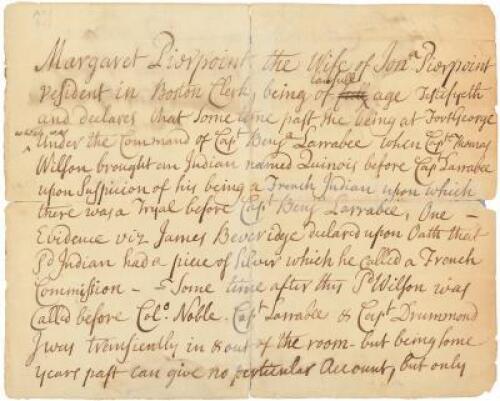 Margaret Pierpoint, the Wife of Jon.ª Pierpoint
lawfull
resident in Boston Clerk, being of age Testifyeth
and declares that some time past she being at Fort George
which was
Under the Command of Cap.t Benj.ª Larrabee when Cap.t Thomas
Wilson brought an Indian named Quinois before Cap.t Larrabee
upon Suspicion of his being a French Indian upon which
there was a Tryal before Cap.t Benj.ª Larrabee, One –
Evidence viz James Beveridge declared upon Oath that
s.d Indian had a piece of Silver which he called a French
Commission – & Some time after this s.d Wilson was
Called before Col.o Noble. Cap.t Larrabee & Cap.t Drummond
I was transiently in & out of the room – but being some
years past can give no particular Account, but only